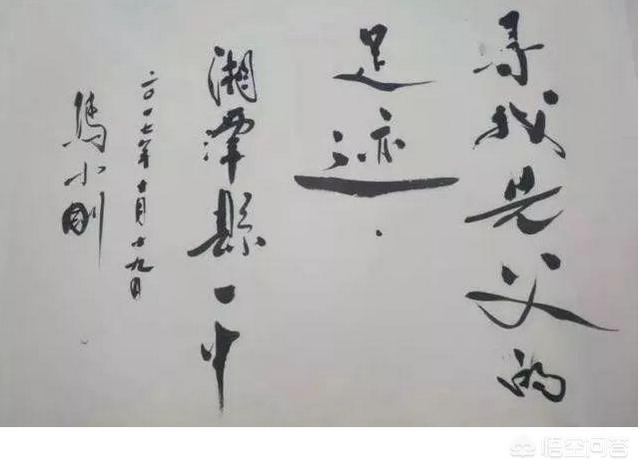 寻我先父的
足迹.
湘潭縣一中
二〇一七年十月十九日
馮小刚
悟空问答